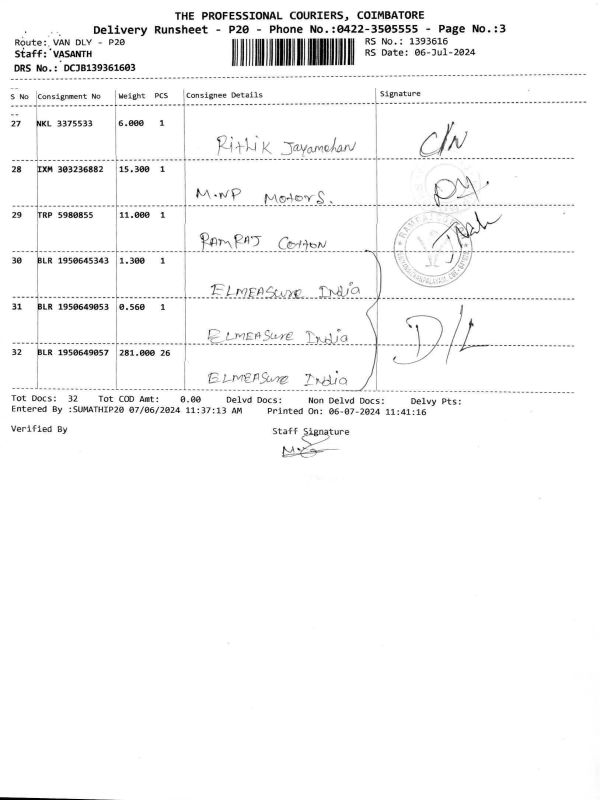 THE PROFESSIONAL COURIERS, COIMBATORE
Delivery Runsheet - P20 - Phone No.:0422-3505555 - Page No.:3
Route: VAN DLY - P20
RS No.: 1393616
Staff: VASANTH
RS Date: 06-Jul-2024
DRS No.: DCJB139361603
S No Consignment No Weight PCS Consignee Details Signature
27 NKL 3375533 6.000 1 Rithik Jayamohan
28 IXM 303236882 15.300 1 M.NP Motors.
29 TRP 5980855 11.000 1 RAMRAJ Cotton
30 BLR 1950645343 1.300 1 ELMEASure India
31 BLR 1950649053 0.560 1 ELMEASure India
D/L
32 BLR 1950649057 281.000 26 ELMEASure India
Tot Docs: 32 Tot COD Amt: 0.00 Delvd Docs: Non Delvd Docs: Delvy Pts:
Entered By :SUMATHIP20 07/06/2024 11:37:13 AM Printed On: 06-07-2024 11:41:16
Verified By Staff Signature